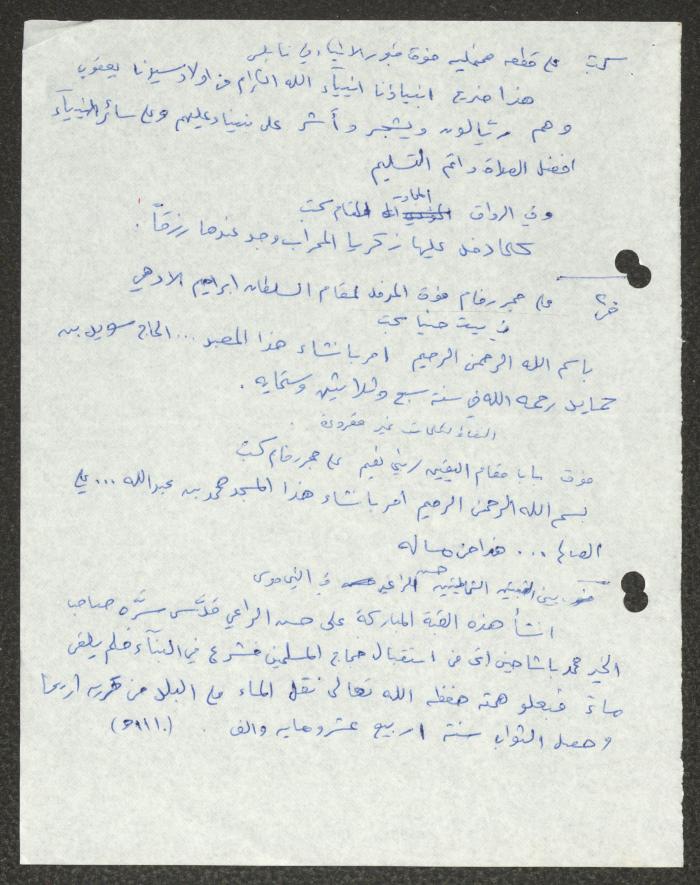 كتب على قطعة فوق قبور الانبياء في نابلس
هذا ضريح انبياؤنا انبيآء الله الكرام من اولاد سيدنا يعقوب
وهم ريالون ويشجر وأشر على نبينا وعليهم وعلى سائر الانبيآء
افضل الصلاة واتم التسليم
وفي الرواق المقام كتب
كلما دخل عليها زكريا المحراب وجد عندها رزقاً.
على حجر رخام فوق المرقد لمقام السلطان ابراهيم الادهمي
في بيت حنينا كتب
باسم الله الرحمن الرحيم امر بانشاء هذا ... الحاج سويد بن
رحمه الله في سنة سبع وثلاثين وستمايه.
كلمات غير مقروءة
فوق باب مقام اليقين بني نعيم على حجر رخام كتب
بسم الله الرحمن الرحيم امر بانشاء هذا المسجد محمد بن عبدالله ... علي
الصالح ... هذا من ماله
حسن الراعي في النبي موسى
انشأ هذه القبة المباركة على حسن الراعي قدّس سرّه صاحب
الخير محمد باشا حين اتى من استقبال حجاج المسلمين فشرع في البنآء فلم يلقى
مآءً فبعلو همته حفظه الله تعالى نقل الماء على البغل من قرية اريحا
وحصل الثواب سنة اربع عشر ومايه والف (١١١٠هـ)